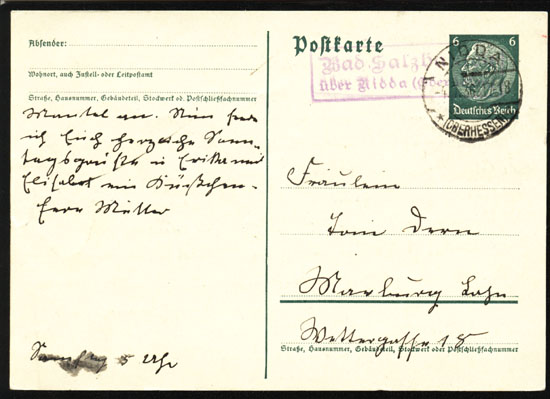 Absender:
Wohnort, auch Zustell- oder Leitpostamt
Straße, Hausnummer, Gebäudeteil, Stockwerk od. Postschließfachnummer
Mantel an. Nun
ich Euch herzliche Sonn-
tagsgrüße
Elisabet ein Küßchen.
Eure Mutter
5 Uhr
Postkarte
Bad-Salzh
über Nidda (Ober
6 6
NIDDA
(OBERHESSEN)
Deutsches Reich
Fräulein
Marburg Lahn
Wettergasse 18
Straße, Hausnummer, Gebäudeteil, Stockwerk oder Postschließfachnummer